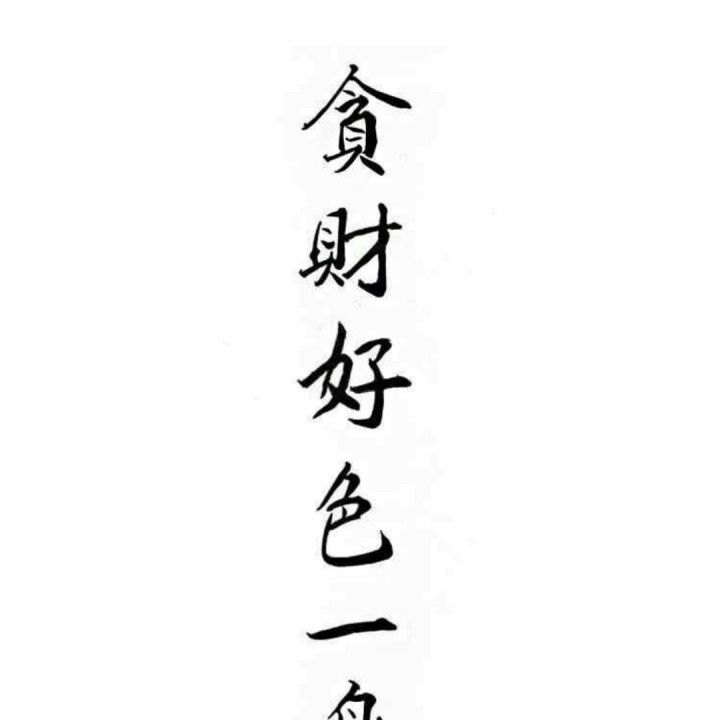 貪財好色一